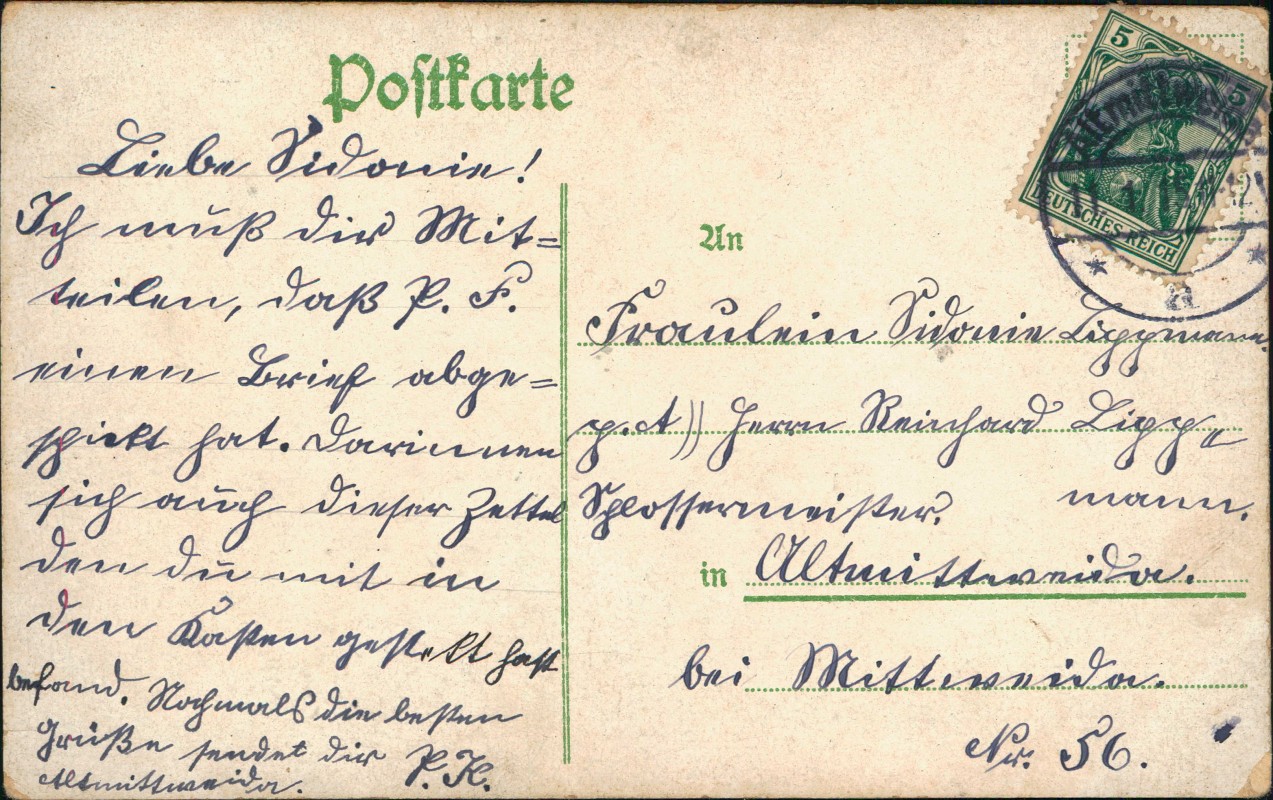 Postkarte
Liebe Sidonie!
Ich muß dir Mit=
teilen, daß P. F.
einen Brief abge=
schickt hat. Darinnen
sich auch dieser Zettel
den du mit in
den Kasten gestekt hast
befand. Nochmals die besten
Grüße sendet dir P. K.
Altmittweida.
5 5
DEUTSCHES REICH
An
Fräulein Sidonie Lippmann.
p. Herrn Reinhard Lipp=
Schlossermeister. mann.
in Altmittweida.
bei Mittweida.
Nr. 56.